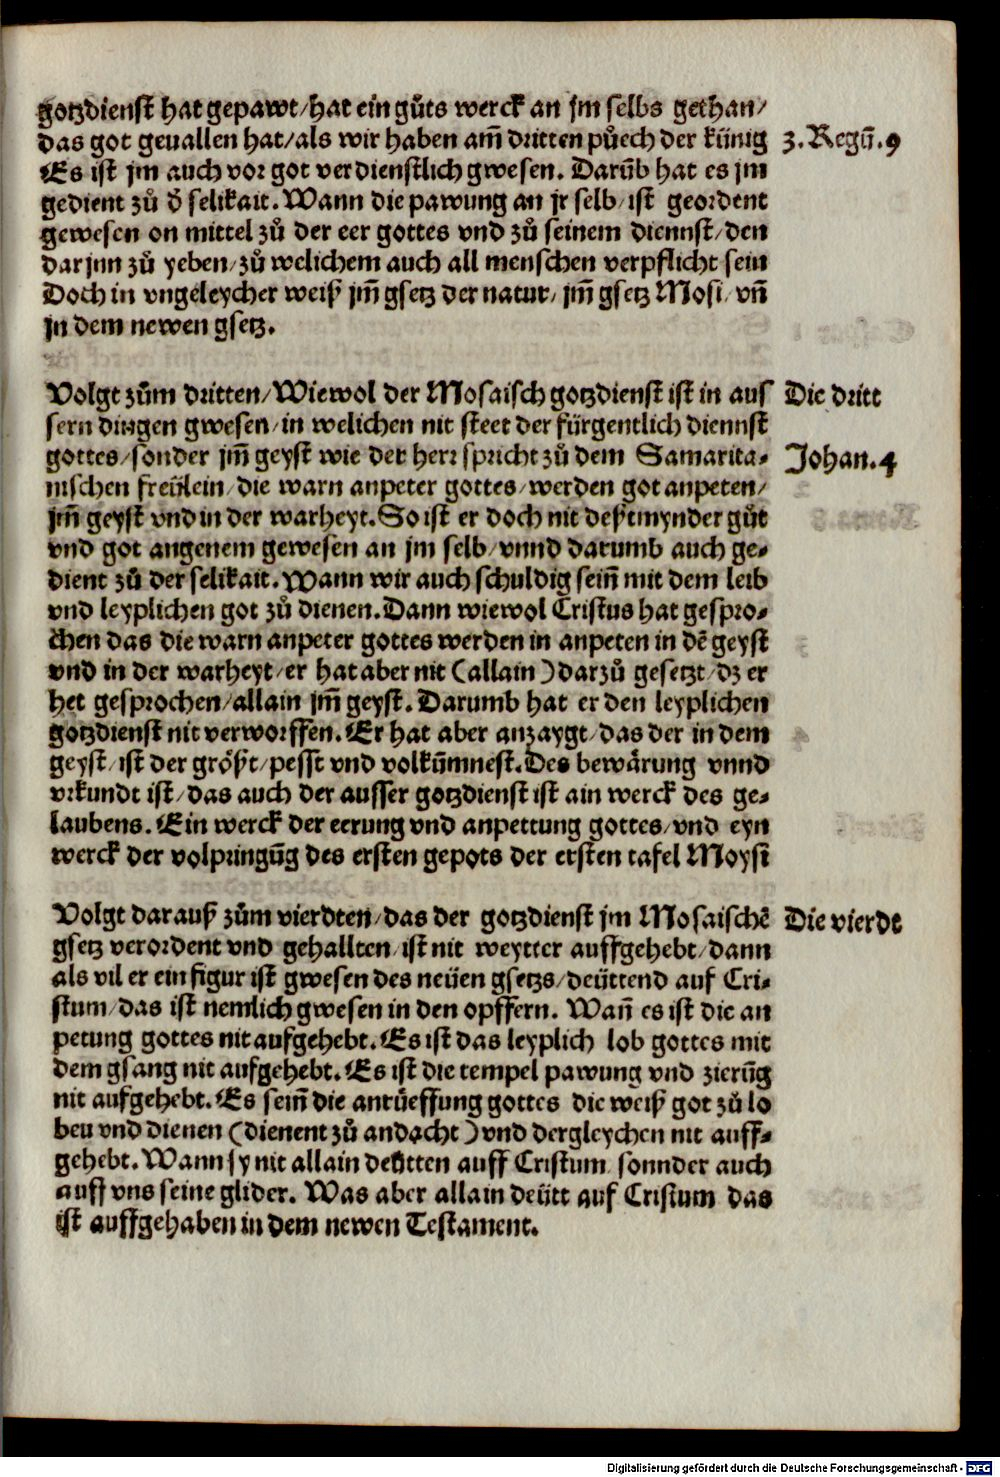 gotzdienst hat gepawt/hat ein gůts werck an jm selbs gethan/
das got geuallen hat/als wir haben am̃ dritten půech der künig 3. Regũ. 9
Es ist jm auch vor got verdienstlich gwesen. Darũb hat es jm
gedient zů d̕ selikait. Wann die pawung an jr selb/ist geordent
gewesen on mittel zů der eer gottes vnd zů seinem diennst/den
darjnn zů yeben/zů welichem auch all menschen verpflicht sein
Doch in vngeleycher weiß jm̃ gsetz der natur/jm̃ gsetz Mosi/vñ
jn dem newen gsetz.
Volgt zům dritten/Wiewol der Mosaisch gotzdienst ist in aus Die dritt
sern dingen gwesen/in welichen nit steet der fürgentlich diennst
gottes/sonder jm̃ geyst wie der herr spricht zů dem Samarita- Johan. 4
nischen freülein/die warn anpeter gottes/werden got anpeten/
jm̃ geyst vnd in der warheyt. So ist er doch nit deßtmynder gůt
vnd got angenem gewesen an jm selb/vnnd darumb auch ge-
dient zů der selikait. Wann wir auch schuldig sein̄ mit dem leib
vnd leyplichen got zů dienen. Dann wiewol Cristus hat gespro-
chen das die warn anpeter gottes werden in anpeten in dē geyst
vnd in der warheyt/er hat aber nit (allain) darzů gesetzt/dz er
het gesprochen/allain jm̃ geyst. Darumb hat er den leyplichen
gotzdienst nit verworffen. Er hat aber anzaygt/das der in dem
geyst/ist der größt/pesst vnd volkũmnest. Des bewärung vnnd
vrkundt ist/das auch der ausser gotzdienst ist ain werck des ge-
laubens. Ein werck der eerung vnd anpettung gottes/vnd eyn
werck der volpringũg des ersten gepots der ersten tafel Moysi
Volgt darauß zům vierdten/das der gotzdienst jm Mosaischē Die vierdt
gsetz verordent vnd gehallten/ist nit weytter auffgehebt/dann
als vil er ein figur ist gwesen des neüen gsetzs/deüttend auf Cri-
stum/das ist nemlich gwesen in den opffern. Wañ es ist die an
petung gottes nit aufgehebt. Es ist das leyplich lob gottes mit
dem gsang nit aufgehebt. Es ist die tempel pawung vnd zierũg
nit aufgehebt. Es sein̄ die anrüeffung gottes die weiß got zů lo
ben vnd dienen (dienent zů andacht) vnd dergleychen nit auff-
gehebt. Wann sy nit allain deütten auff Cristum/sonnder auch
auff vns seine glider. Was aber allain deütt auf Cristum das
ist auffgehaben in dem newen Testament.
Digitalisierung gefördert durch die Deutsche Forschungsgemeinschaft - DFG